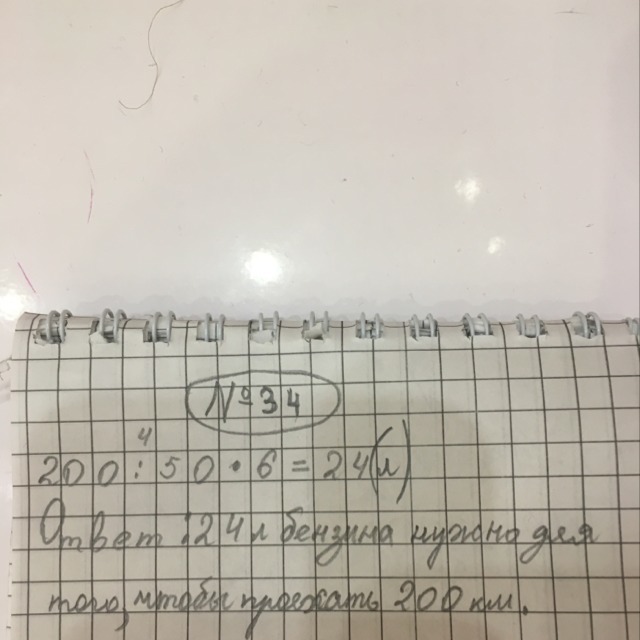 №34
4
200:50·6=24(л)
Ответ:24 л бензина нужно для
того, чтобы проехать 200 км.